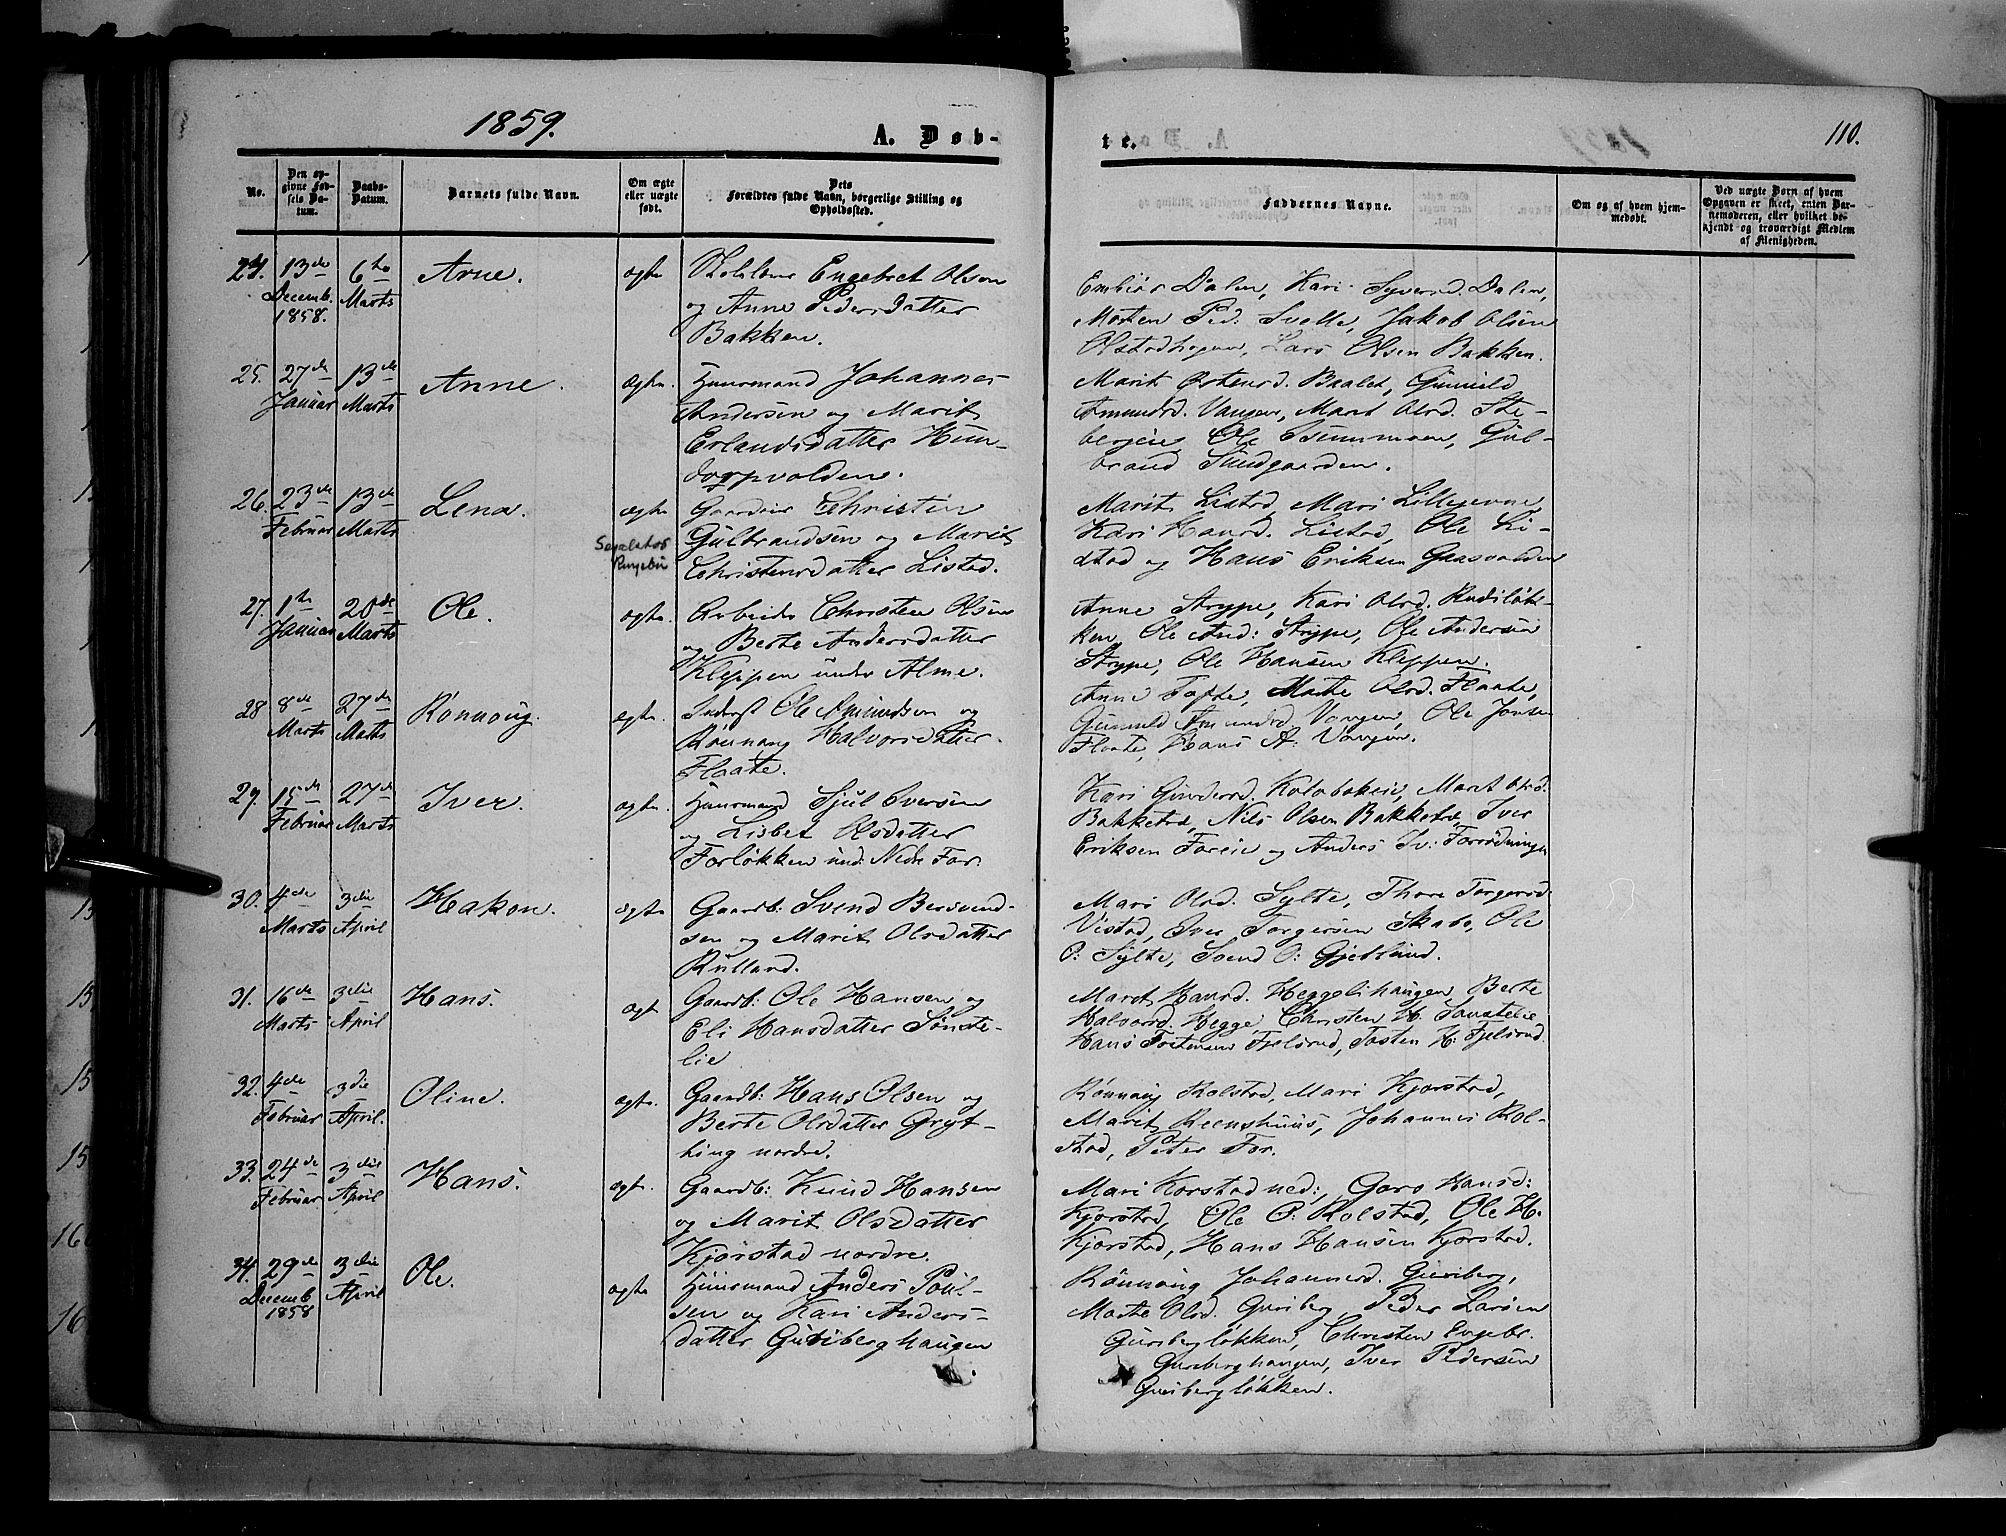 1859.
A. Døb-
te.
110.
No.
Den op-
givne Fød-
sels Da-
tum.
Daabs-
Datum.
Barnets fulde Navn.
Om ægte
eller uægte
født.
Dets
Forældres fulde Navn, borgerlige Stilling og
Opholdssted.
Faddernes Navne.
Om og af hvem hjem-
medøbt.
Ved uægte Børn af hvem
Opgaven er skeet, enten Bar-
nemoderen, eller hvilket be-
kjendt og troværdigt Medlem
af Menigheden.
24. 13de Decemb. 1858. 6te Marts Arne. ægte
Engebret Olsen
og Anne Pedersdatter
Bakken.
Embiør Dalen, Kari Syversd. Dalen,
Morten Ped: Svelle, Jakob Olsen
Olstadhagen, Lars Olsen Bakken.
25. 27de Januar 13de Marts Anne. ægte.
Huusmand Johannes
Andersen og Marit
Erlandsdatter Hun-
dorpvolden.
Marit Østensd. Baalet, Gunild
Amundsd. Vangen, Marit Olsd. Ste-
bergeie, Ole Gul-
brand Sundgaarden.
26. 23de Februar 13de Marts Lena. ægte
Gaardeier Christen
Gulbrandsen og Marit
Christensdatter Listad.
Ringebu
Marit Listad, Mari Lillejevne
Kari Hansd. Listad, Ole Li-
stad og Hans Eriksen Gaasvolden
27. 1te Januar 20de Marts Ole. ægte.
Arbeider Christen Olsen
og Berte Andersdatter
Kleppen under Alme.
Anne Strype, Kari Olsd. Rudiløk-
ken, Ole And: Strype, Ole Andersen
Strype, Ole Hansen Kleppen.
28 8de Marts 27de Marts Rønnoug. ægte.
Inderst Ole Amundsen og
Rønnaug Halvorsdatter
Flaate.
Anne Tofte, Marte Olsd. Flaate,
Gunild Amundsd. Vangen, Ole Jonsen
Flaate, Hans A: Vangen.
29. 15de Februar 27de Marts Iver. ægte.
Huusmand Sjul Iversen
og Lisbet Olsdatter
Forløkken und: Nedre For.
Kari Gundersd. Kolobakeie, Marit Olsd.
Bakkestad, Nils Olsen Bakkestad, Iver
Eriksen Foreie og Anders Iv: Forrødningen
30. 4de Marts 3die April Hakon. ægte
Gaardb: Svend Bersvend-
sen og Marit Olsdatter
Rulland.
Mari Olsd. Sylte, Thore Torgersd.
Vistad, Iver Torgersen Skabo, Ole
O: Sylte, Svend O: Gjetlund.
31. 16de Marts 3die April Hans. ægte
Gaardb: Ole Hansen og
Eli Hansdatter Sønste-
lie
Marit Hansd. Heggelihaugen, Berte
Halvorsd. Hegge, Christen H. Sønstelie
Hans Tostensen Fjelsrud, Tosten H: Fjelsrud.
32. 4de Februar 3die April. Oline. ægte.
Gaardb: Hans Olsen og
Berte Olsdatter Gryt-
ting nordre.
Rønnaug Rolstad, Mari Kjorstad,
Marit Reenshuus, Johannes Rol-
stad, Peter For.
33. 24de Februar 3die April Hans. ægte.
Gaardb: Knud Hansen
og Marit Olsdatter
Kjorstad nordre.
Mari Korstad ned:, Goro Hansd:
Kjorstad, Ole P: Rolstad, Ole H.
Kjorstad, Hans Hansen Kjorstad.
34. 29de Decemb 1858 3die April Ole. ægte
Huusmand Anders Poul-
sen og Kari Anders-
datter Gutiberghaugen
Rønnaug Johannesd. Gusiberg,
Marthe Olsd. Gusiberg, Peder Larsen
Gusibergløkken, Christen Engebr.
Gusiberghaugen, Iver Pedersen
Gusibergløkken.